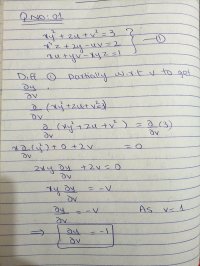 Q.NO: 01
xy² + 2u + v² = 3
x²z + 2y - uv = 2 } — ①
xu + yv - xyz = 1
Diff ① Partially w.r.t v to get
∂y/∂v
∂/∂v (xy² + 2u + v²)
∂/∂v (xy² + 2u + v²) = ∂/∂v (3)
x ∂/∂v (y²) + 0 + 2v = 0
2xy ∂y/∂v + 2v = 0
xy ∂y/∂v = -v
∂y/∂v = -v As v = 1
⇒ ∂y/∂v = -1